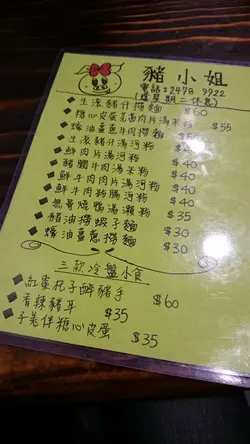 豬小姐
電話:2478 9922
(逢星期二休息)
◆生滾豬什撈麵 $60
◆糖心皮蛋芫茜肉片湯米粉 $55
◆蠔油薑蔥牛肉撈麵 $55
◆生滾豬什湯河粉 $
◆鮮肉肉片湯河粉 $40
◆豬膶牛肉湯米粉 $40
◆鮮牛肉肉片湯河粉 $40
◆鮮牛肉粉腸河粉 $40
◆無骨燒鴨湯瀨粉 $40
◆豬油撈蝦子麵 $35
◆蠔油薑蔥撈麵 $30
$30
三款冷盤小食
◆紅棗杞子醉豬手 $60
◆香辣豬耳 $35
◆子羌伴糖心皮蛋 $35